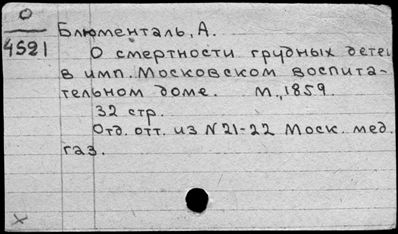 О
4521
Блюменталь, А.
О смертности грудных детей
в имп. Московском воспита-
тельном доме. М., 1859.
32 стр.
Отд. отт. из N 21-22 Моск. мед.
газ.